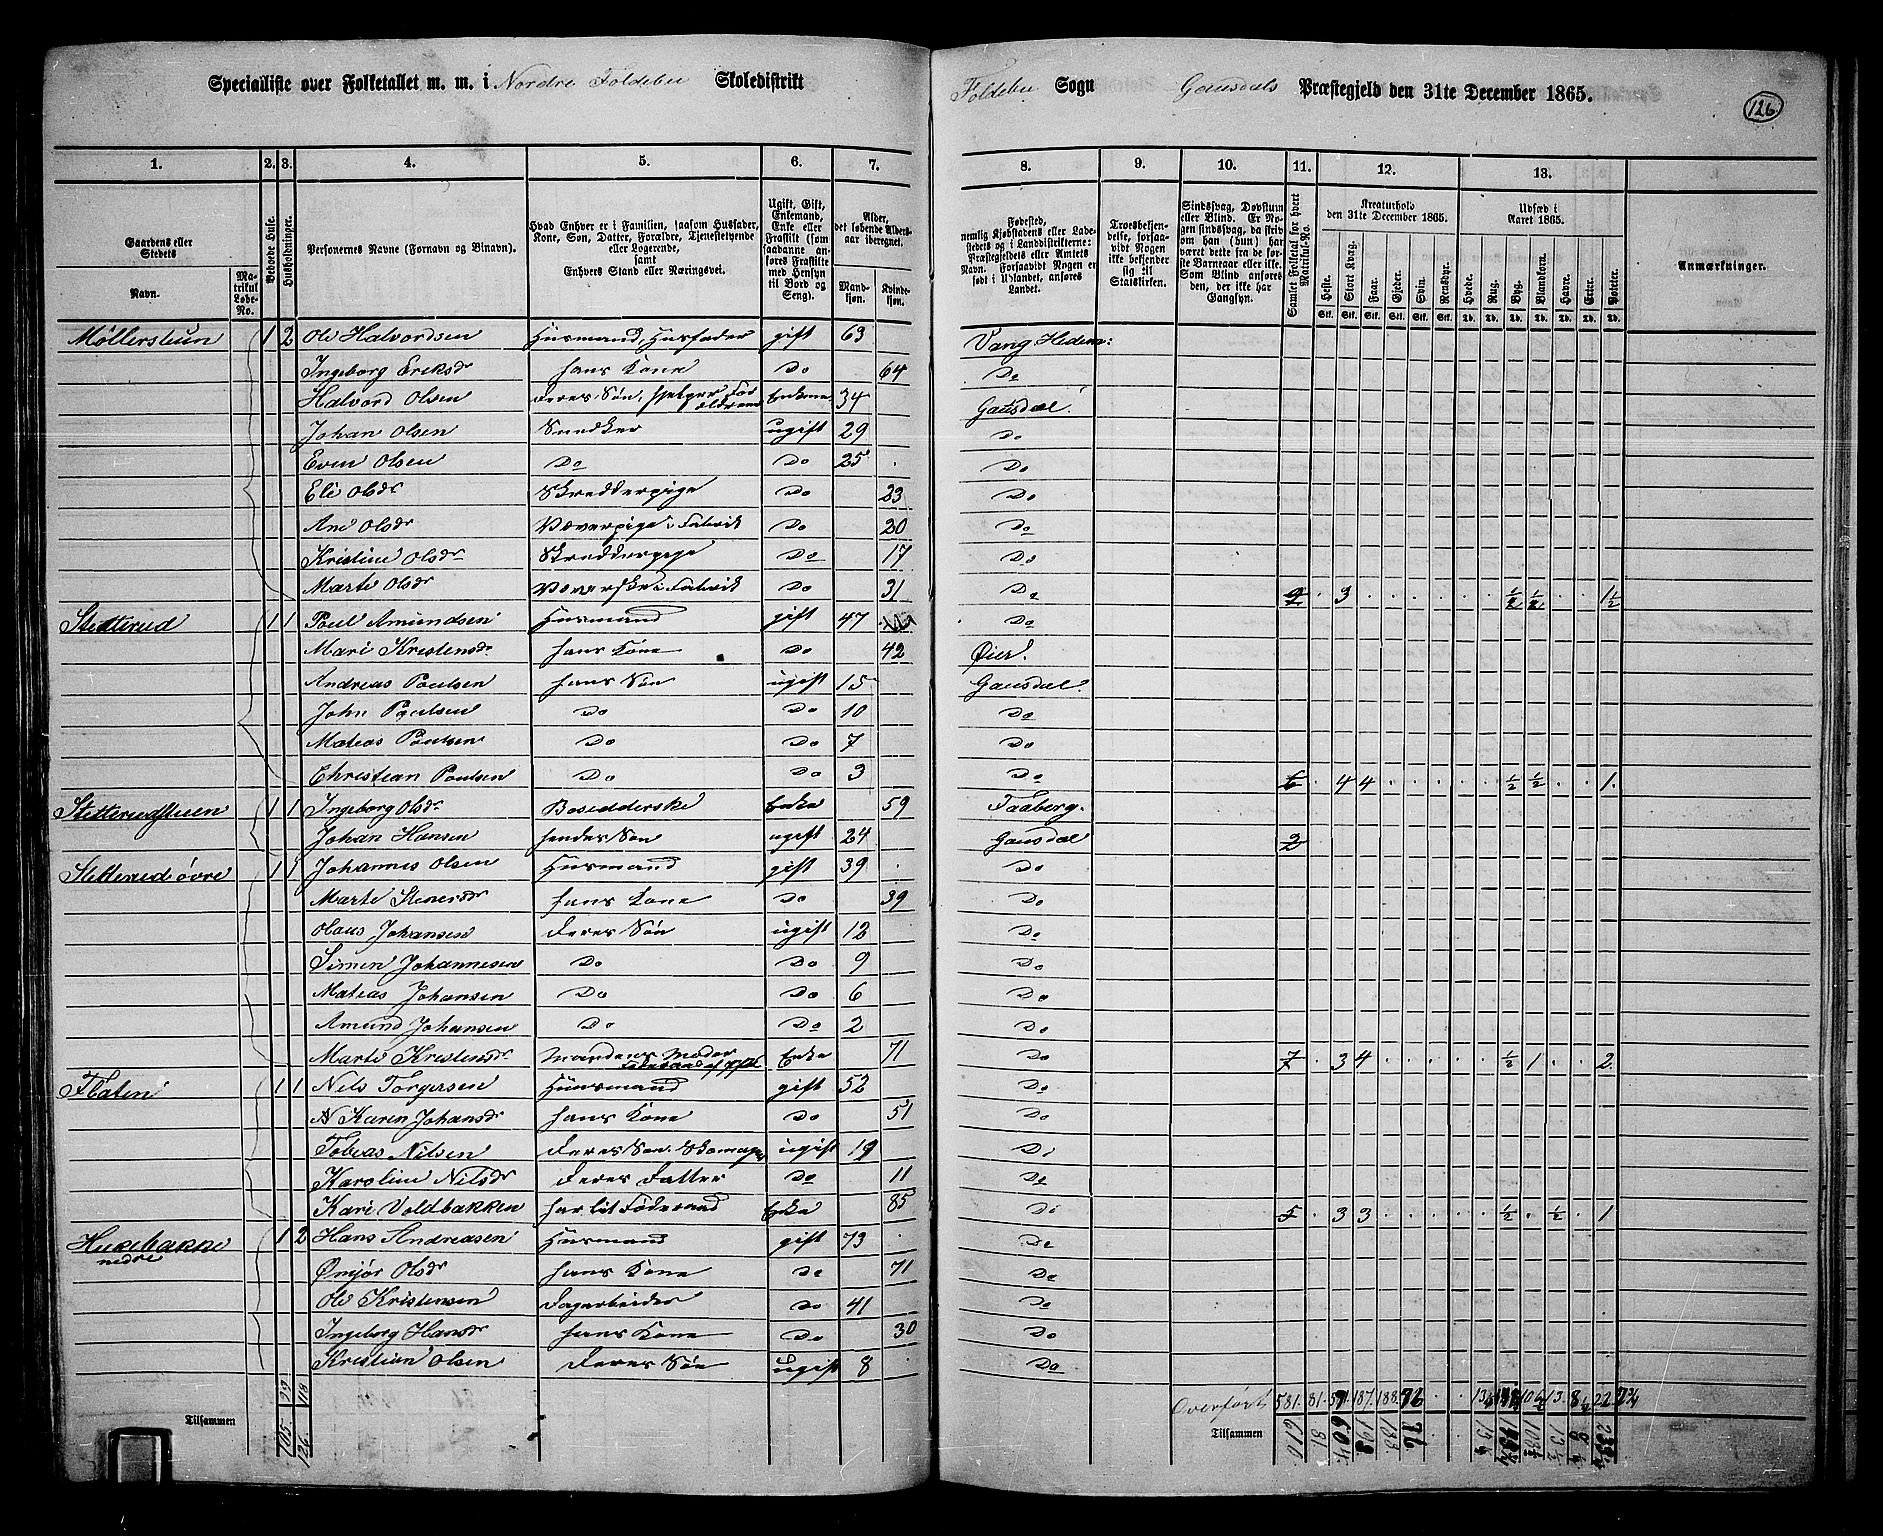 Specialliste over Folketallet m. m. i Nordre Foldebu Skoledistrikt Foldebu Sogn Gausdals Præstegjeld den 31te December 1865. 126
1. 2. 3. 4. 5. 6. 7. 8. 9. 10. 11. 12. 13.
Gaardens eller Stedets Navn. Matrikul Løbe-No. Beboede Huse. Husholdninger. Personernes Navne (Fornavn og Binavn).
Hvad Enhver er i Familien, saasom Husfader, Kone, Søn, Datter, Forældre, Tjenestetyende eller Logerende, samt Enhvers Stand eller Næringsvei.
Ugift, Gift, Enkemand, Enke eller Fraskilt (som saadanne anføres Fraskilte med Hensyn til Bord og Seng).
Alder, det løbende Aldersaar iberegnet. Mandkjøn. Kvindekjøn.
Fødested, nemlig Kjøbstadens eller Ladestedets og i Landdistrikterne: Præstegjeldets eller Amtets Navn. Forsaavidt Nogen er født i Udlandet, anføres Landet.
Troesbekjendelse, forsaavidt Nogen ikke bekjender sig til Statskirken.
Sindssvag, Døvstum eller Blind. Er Nogen sindssvag, da skrives om han (hun) har været dette fra de første Barneaar eller ikke. Som Blind anføres den, der ikke har Gangsyn.
Samlet Folketal for hvert Matrikul-No.
Kreaturhold den 31te December 1865. Heste. Stort Kvæg. Faar. Gjeder. Svin. Rensdyr. Stk. Stk. Stk. Stk. Stk. Stk.
Udsæd i Aaret 1865. Hvede. Rug. Byg. Blandkorn. Havre. Erter. Poteter. Td. Td. Td. Td. Td. Td. Td.
Anmærkninger.
Møllerstuen 1 2 Ole Halvordsen Husmand, Husfader gift 63 Vang Hedem:
Ingeborg Eriksdr hans Kone Do 64 Do
Halvord Olsen deres Søn, hjelper Forældrene Enkem. 34 Gausdal
Johan Olsen Snedker ugift 29 Do
Even Olsen Do Do 25 Do
Eli Olsdr Skredderpige Do 23 Do
Ane Olsdr Væverpige i Fabrik Do 20 Do
Kristine Olsdr Skredderpige Do 17 Do
Marte Olsdr Væverske i Fabrik Do 31 Do 9 3 1/2 1/2 1 1/2
Stetterud 1 1 Poul Amundsen Husmand gift 47 Do
Mari Kristensdr hans Kone Do 42 Øier
Andreas Poulsen hans Søn ugift 15 Gausdal
John Poulsen Do Do 10 Do
Mateas Poulsen Do Do 7 Do
Christian Poulsen Do Do 3 Do 6 4 4 1/2 1/2 1
Stetterudstuen 1 1 Ingeborg Olsdr Enke 59 Faaberg
Johan Hansen hendes Søn ugift 24 Gausdal 2
Stetterud øvre 1 1 Johannes Olsen Husmand gift 39 Do
Marte Stenersdr hans Kone Do 39 Do
Olaus Johansen deres Søn ugift 12 Do
Simen Johannesen Do Do 9 Do
Mateas Johansen Do Do 6 Do
Amund Johansen Do Do 2 Do
Marte Kristensdr Mandens Moder Enke 71 Do 7 3 4 1/2 1 2
Flaten 1 1 Nils Torgersen Husmand gift 52 Do
Karen Johansdr hans Kone Do 51 Do
Tobeas Nilsen deres Søn. Skomager ugift 19 Do
Karoline Nilsdr deres Datter Do 11 Do
Kari Voldbakken har lit Føderaad Enke 85 Do 5 3 3 1/2 1/2 1
Husebakke nedre 1 2 Hans Andreasen Husmand gift 73 Do
Ømjør Olsdr hans Kone Do 71 Do
Ole Kristensen Dagarbeider Do 41 Do
Ingeborg Hansdr hans Kone Do 30 Do
Kristian Olsen deres Søn ugift 8 Do
99 118 Overført 581. 81. 187. 188.
Tilsammen 105. 126. Tilsammen 610 81 604. 76